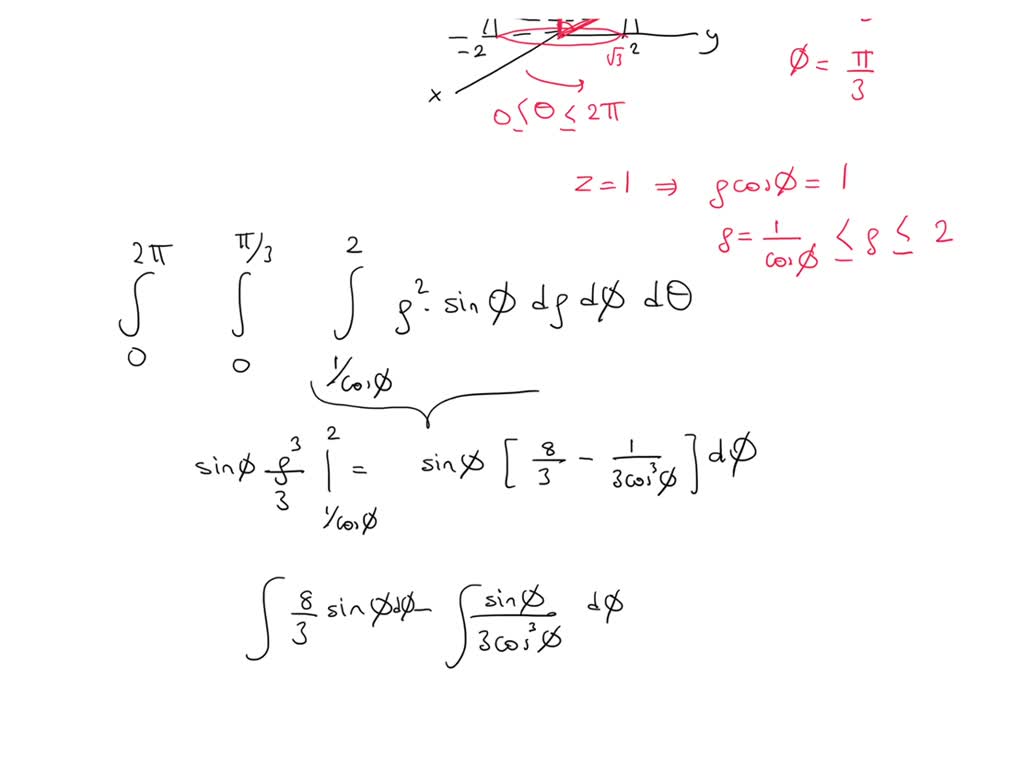 -2 √3 2 y
φ = π/3
x
0 ≤ θ ≤ 2π
z = 1 ⇒ ρcosφ = 1
ρ = 1/cosφ ≤ ρ ≤ 2
∫_0^{2π} ∫_0^{π/3} ∫_{1/cosφ}^{2} ρ² · sin φ dρ dφ dθ
sinφ ρ³/3 |_{1/cosφ}^{2} = sinφ [ 8/3 - 1/3cos³φ ] dφ
∫ 8/3 sin φdφ - ∫ sinφ/3cos³φ dφ